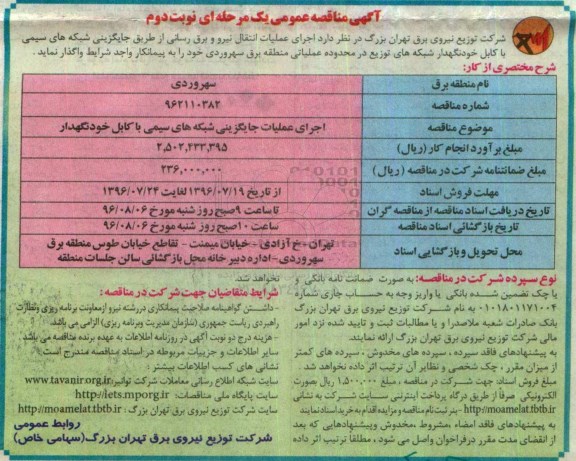 آگهی مناقصه عمومی یک مرحله ای نوبت دوم
شرکت توزیع نیروی برق تهران بزرگ در نظر دارد اجرای عملیات انتقال نیرو و برق رسانی از طریق جایگزینی شبکه های سیمی
با کابل خودنگهدار شبکه های توزیع در محدوده عملیاتی منطقه برق سهروردی خود را به پیمانکار واجد شرایط واگذار نماید.
شرح مختصری از کار:
نام منطقه برق سهروردی
شماره مناقصه ۹۶۲۱۱۰۳۸۲
موضوع مناقصه اجرای عملیات جایگزینی شبکه های سیمی با کابل خودنگهدار
مبلغ برآورد انجام کار (ریال) ۲,۵۰۲,۴۳۳,۳۹۵
مبلغ ضمانتنامه شرکت در مناقصه (ریال) ۲۳۶,۰۰۰,۰۰۰
مهلت فروش اسناد از تاریخ ۱۳۹۶/۰۷/۱۹ لغایت ۱۳۹۶/۰۷/۲۴
تاریخ دریافت اسناد مناقصه از مناقصه گران تا ساعت ۹ صبح روز شنبه مورخ ۹۶/۰۸/۰۶
تاریخ بازگشائی اسناد مناقصه ساعت ۱۰ صبح روز شنبه مورخ ۹۶/۰۸/۰۶
محل تحویل و بازگشایی اسناد تهران - خ آزادی - خیابان میمنت - تقاطع خیابان طوس منطقه برق
سهروردی - اداره دبیر خانه محل بازگشائی سالن جلسات منطقه
نوع سپرده شرکت در مناقصه: به صورت ضمانت نامه بانکی و
یا چک تضمین شده بانکی یا واریز وجه به حساب جاری شماره
۰۱۰۱۸۰۱۱۷۱۰۰۴ به نام شرکت توزیع نیروی برق تهران بزرگ
بانک صادرات شعبه ملاصدرا و یا مطالبات ثبت و تایید شده نزد امور
مالی شرکت توزیع نیروی برق تهران بزرگ ارائه نمایند.
به پیشنهادهای فاقد سپرده ، سپرده های مخدوش ، سپرده های کمتر
از میزان مقرر ، چک شخصی و نظایر آن ترتیب اثر داده نخواهد شد.
مبلغ فروش اسناد: جهت شرکت در مناقصه ، مبلغ ۱,۵۰۰,۰۰۰ ریال بصورت
الکترونیکی صرفاً از طریق درگاه پرداخت اینترنتی سایت شرکت به نشانی
http://moamelat.tbtb.ir - بنر ثبت نام مناقصه و مزایده اقدام به خرید اسناد نمایند
به پیشنهادهای فاقد امضاء ،مشروط ،مخدوش وپیشنهادهایی که بعد
از انقضای مدت مقرر درفراخوان واصل می شود ، مطلقا ترتیب اثر داده
نخواهد شد.
شرایط متقاضیان جهت شرکت در مناقصه :
- داشتن گواهینامه صلاحیت پیمانکاری دررشته نیرو ازمعاونت برنامه ریزی ونظارت
راهبردی ریاست جمهوری (سازمان مدیریت وبرنامه ریزی) الزامی می باشد.
- هزینه درج دو نوبت آگهی در روزنامه اطلاعات به عهده برنده مناقصه می باشد
سایر اطلاعات و جزییات مربوطه در اسناد مناقصه مندرج است.
نشانی های کسب اطلاعات بیشتر :
سایت شبکه اطلاع رسانی معاملات شرکت توانیر: www.tavanir.org.ir
سایت پایگاه ملی مناقصات: http://iets.mporg.ir
سایت شرکت توزیع نیروی برق تهران بزرگ : http://moamelat.tbtb.ir
روابط عمومی
شرکت توزیع نیروی برق تهران بزرگ(سهامی خاص)